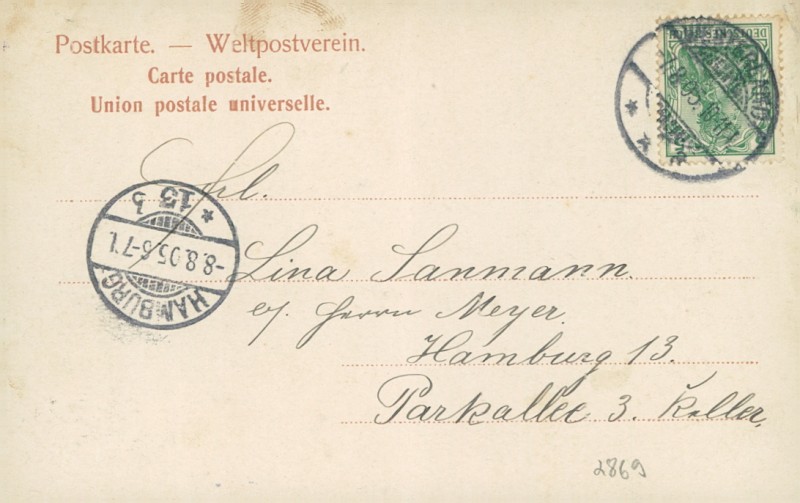 Postkarte. — Weltpostverein.
Carte postale.
Union postale universelle.
DEUTSCHES REICH
7.8.05.
Frl.
* 13 b
-8.8.05.6-7 1.
HAMBURG
Lina Sanmann.
c/. Herrn Meyer.
Hamburg 13.
Parkallee 3. Keller.
2869